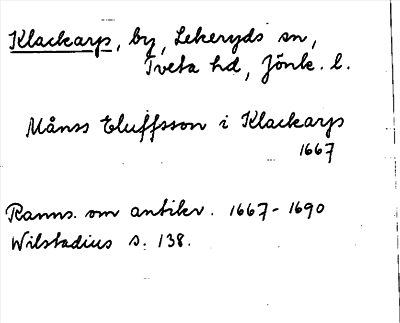 Klackarp, by, Lekeryds sn,
Tveta hd, Jönk. l.
Månss Eluffsson i Klackarp
1667
Ranns. om antikv. 1667-1690
Wilstadius s. 138.